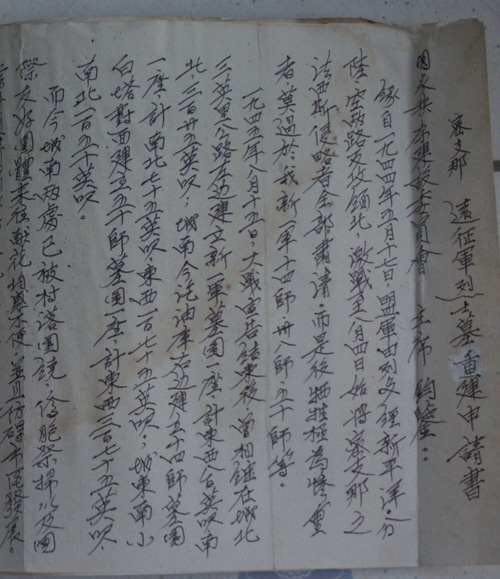 密支那 遠征軍列士墓重建申請書
國人共 委員會 主席 鈞鑒：
緣自一九四四年五月十七日，盟軍由列多經新平洋，分
陸空兩路反攻緬北，激戰至八月四日始將密支那之
法西斯侵略者全部肅清，而是役犧牲極為慘重
者莫過於我新一軍十四師，卅八師，五十師等。
一九四五年八月十五日，大戰宣告結束後，曾相繼在城北
三英里公路左边建立新一軍墓園一座，計東西八百英呎南
北三百廿五英呎；城南今託油庫右边建五十四師墓園
一座，計南北七十五英呎，東西一百七十五英呎；城東南小
白塔對面建立五十師墓園一座，計東西三百七十五英呎，
南北一百五十英呎。
而今城南兩處已被村落圍繞，僑胞祭掃以及國
際友好團體來往獻花均感不便，並且防碍市區發展。